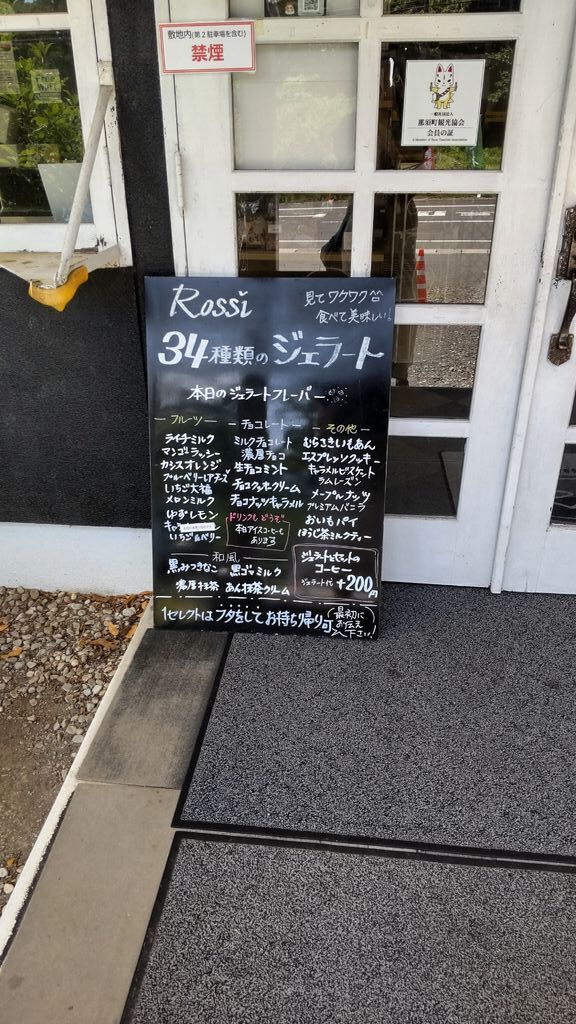 敷地内(第2駐車場を含む)
禁煙
一般社団法人
那須町観光協会
会員の証
A Member of Nasu Tourism Association
Rossi
見てワクワク
食べて美味しい!
34種類のジェラート
本日のジェラートフレーバー
－フルーツ－
ライチミルク
マンゴーラッシー
カシスオレンジ
ブルーベリーレアチーズ
いちご大福
メロンミルク
ゆずレモン
いちご&ベリー
－チョコレート－
ミルクチョコレート
濃厚チョコ
生チョコミント
チョコクッキークリーム
チョコナッツキャラメル
ドリンクも どうぞ
本日アイスコーヒーも
あります
－その他－
むらさきいもあん
エスプレッソクッキー
キャラメルビスケット
ラムレーズン
メープルナッツ
プレミアムバニラ
おいもパイ
ほうじ茶ミルクティー
－和風－
黒みつきなこ 黒ゴマミルク
濃厚抹茶 あん抹茶クリーム
ジェラートとセットの
コーヒー
ジェラート代 +200円
1セレクトはフタをしてお持ち帰り可
(最初に
お伝え
下さい!)